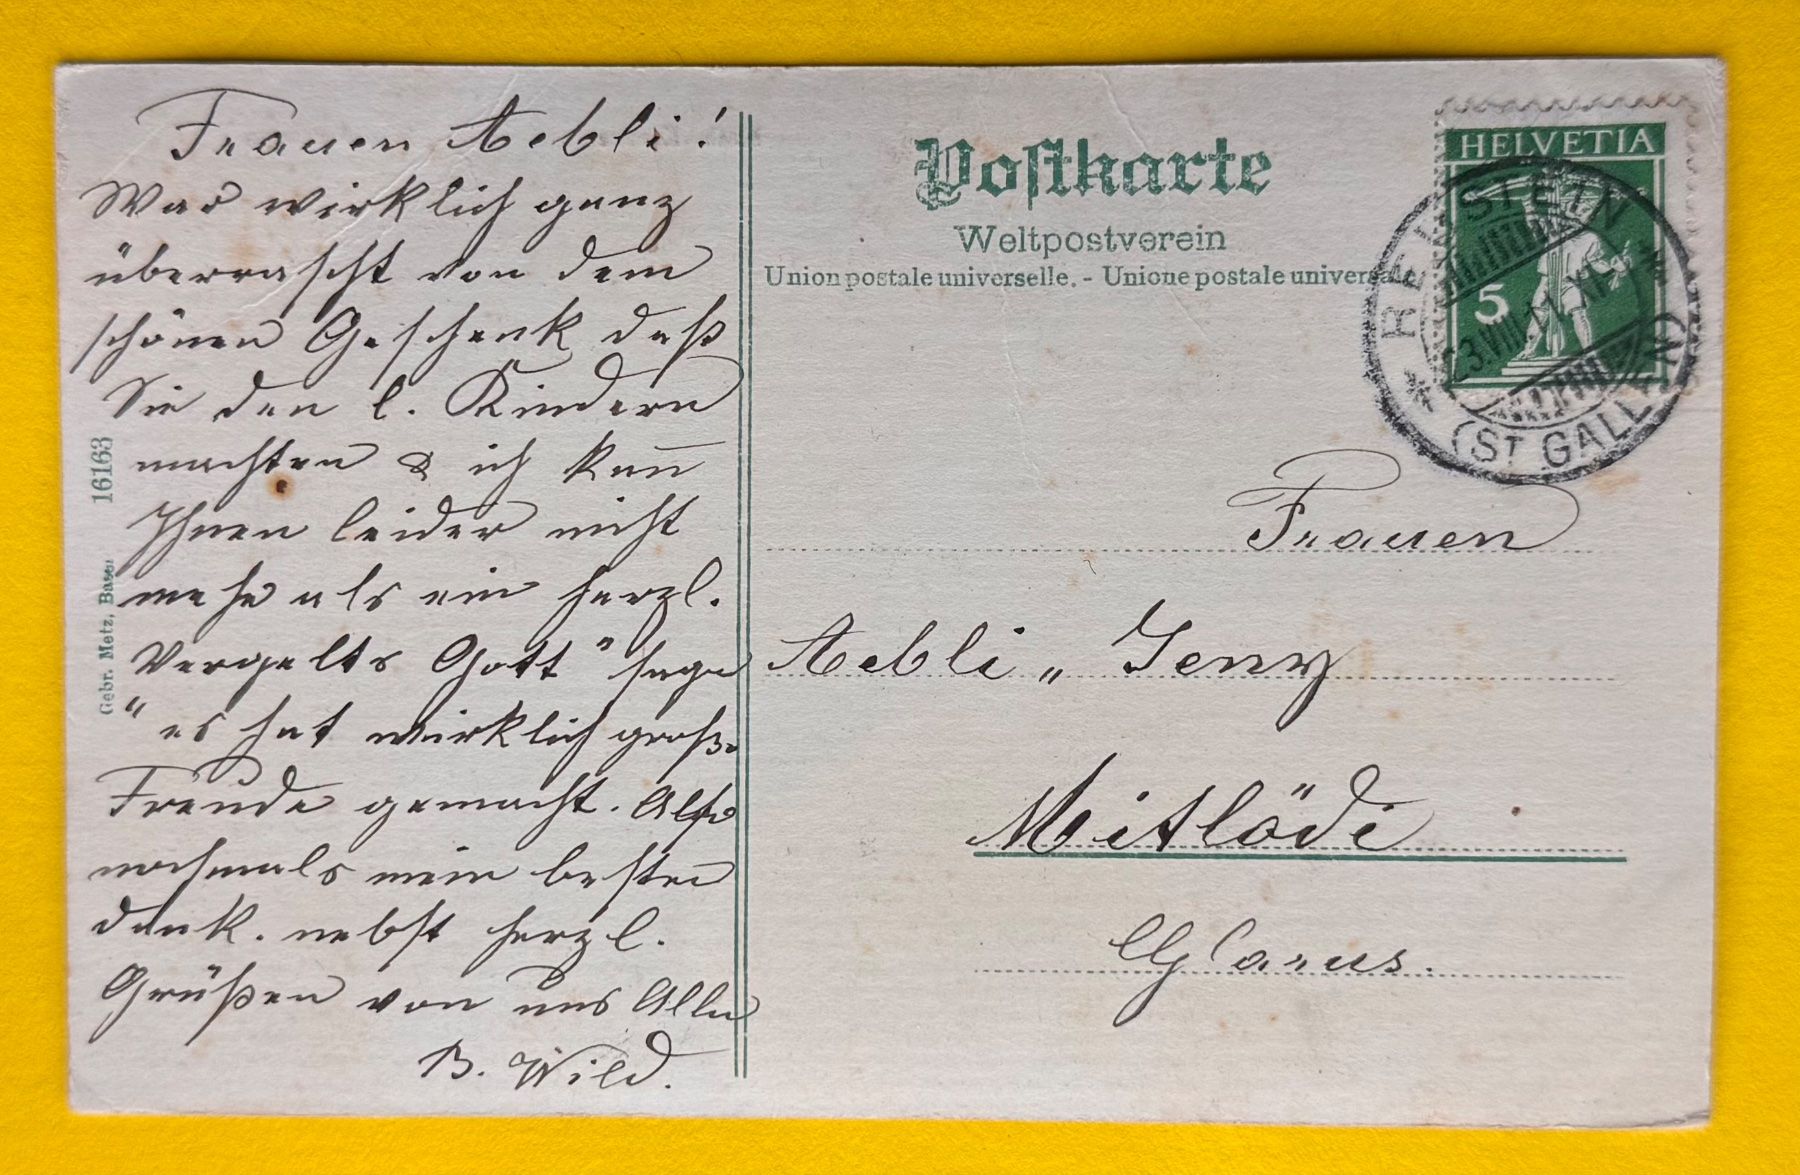 Frauen Aebli!
War wirklich ganz
überrascht von dem
schönen Geschenk daß
Sie den l. Kindern
machten & ich kan̅
Ihnen leider nicht
mehr als ein herzl.
Vergelts Gott " sage
" es hat wirklich große
Freude gemacht. Also
nochmals mein besten
dank. nebst herzl.
Grüßen von uns Allen
B. Wild.
Gebr. Metz, Basel 16163
Postkarte
Weltpostverein
Union postale universelle. - Unione postale universale
HELVETIA
5
REBSTEIN
(ST GALLEN)
Frauen
Aebli „ Jeny
Mitlödi
Glarus.